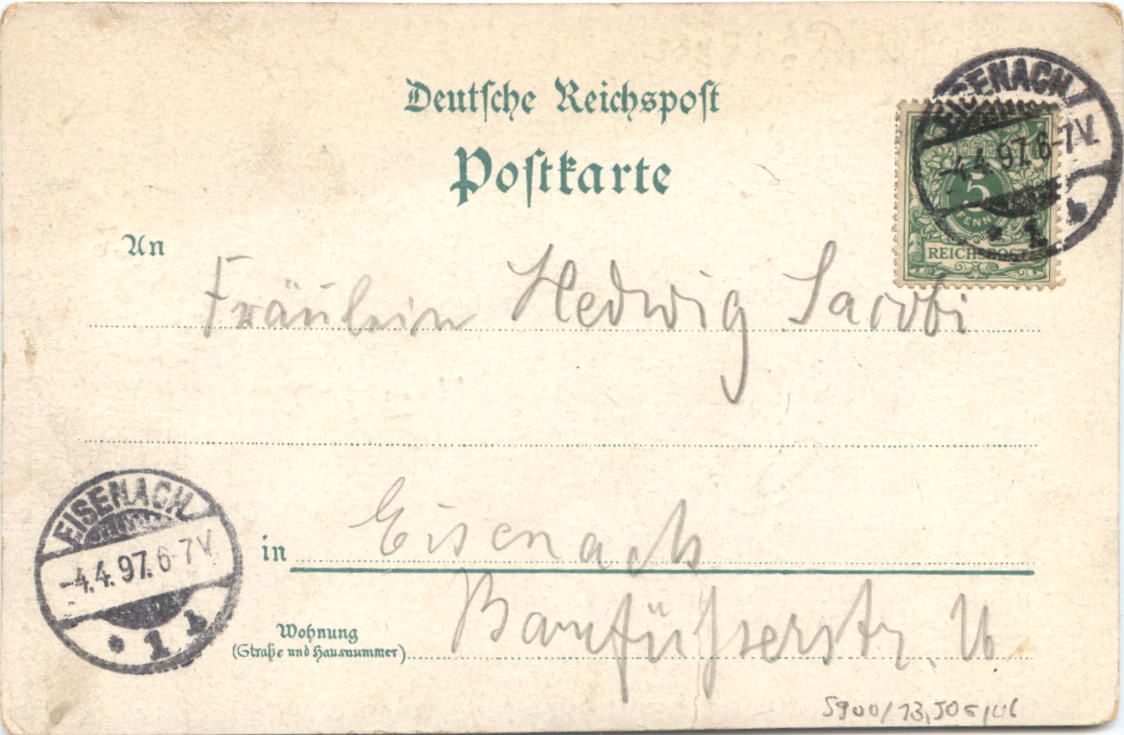 Deutsche Reichspost
Postkarte
EISENACH
-4.4.97.6-7V.
* 1 b
5
PFENNIG
REICHSPOST
An
Fräulein Hedwig Jacobi
EISENACH
-4.4.97.6-7V.
* 1 b
in Eisenach
Wohnung
(Straße und Hausnummer)
Barfüßerstr.
5900/13,